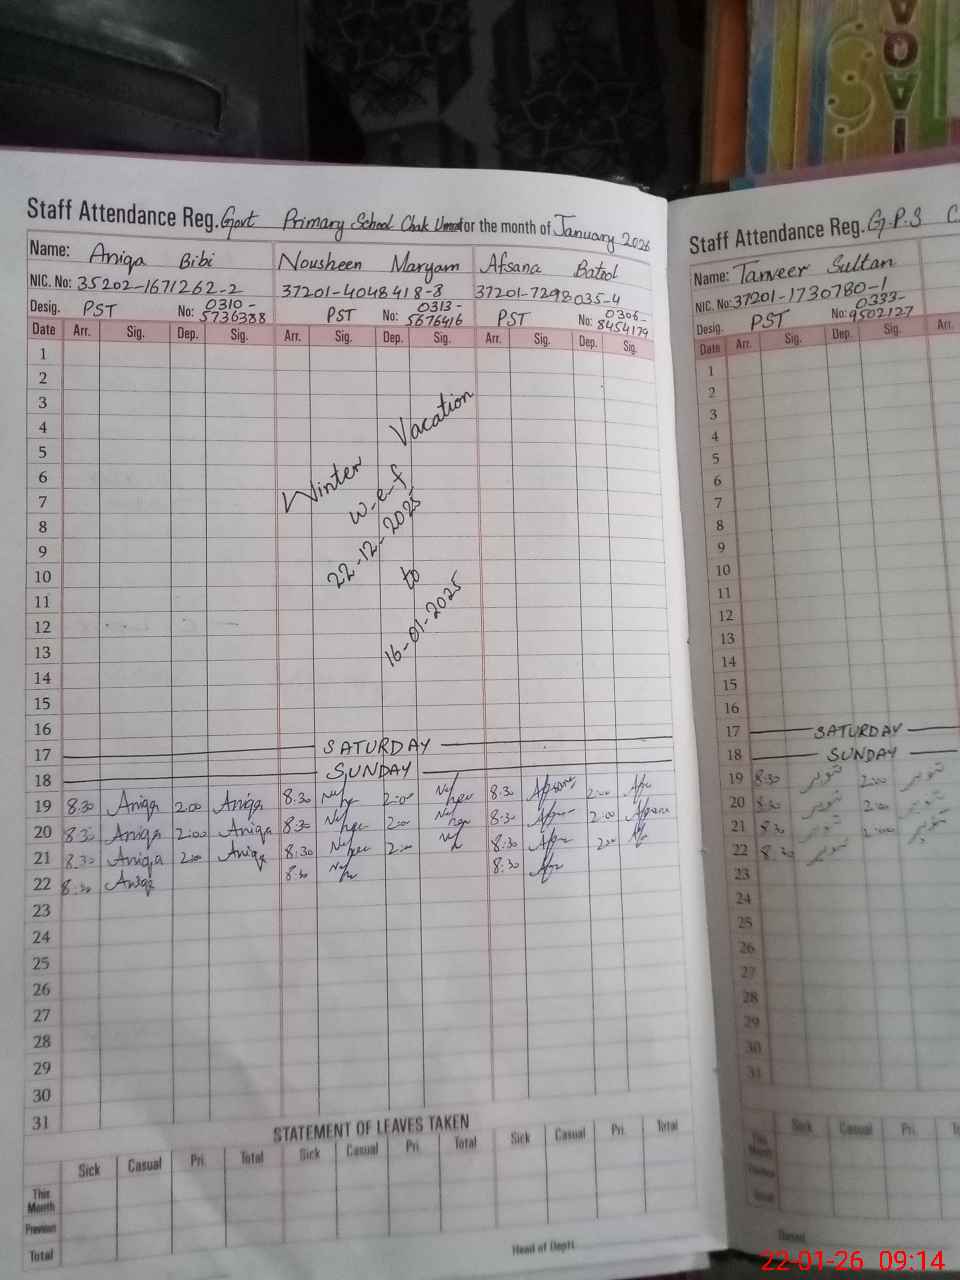 Staff Attendance Reg. Govt Primary School Chak Umra for the month of January 2026
Name: Aniqa Bibi Nousheen Maryam Afsana Batool
NIC. No: 35202-1671262-2 37201-4048418-8 37201-7298035-4
Desig. PST No: 0310-5736338 PST No: 0313-5676416 PST No: 0306-8454179
Date Arr. Sig. Dep. Sig. Arr. Sig. Dep. Sig. Arr. Sig. Dep. Sig.
1
2
3
4
5
6
7
8
9
10
11
12
13
14
15
16
Winter Vacation
w-e-f
22-12-2025
to
16-01-2025
17 SATURDAY
18 SUNDAY
19 8:30 Aniqa 2:00 Aniqa 8:30 2:00 8:30 Afsana 2:00
20 8:30 Aniqa 2:00 Aniqa 8:30 2:00 8:30 2:00 Afsana
21 8:30 Aniqa 2:00 Aniqa 8:30 2:00 8:30 2:00
22 8:30 Aniqa 8:30 8:30
23
24
25
26
27
28
29
30
31
STATEMENT OF LEAVES TAKEN
Sick Casual Pri. Total Sick Casual Pri. Total Sick Casual Pri. Total
This Month
Previous
Total
Head of Deptt.
Staff Attendance Reg. G.P.S C
Name: Tanveer Sultan
NIC. No: 37201-1730780-1
Desig. PST No: 0333-9502127
Date Arr. Sig. Dep. Sig. Arr.
1
2
3
4
5
6
7
8
9
10
11
12
13
14
15
16
17 SATURDAY
18 SUNDAY
19 8:30 تنویر 2:00 تنویر
20 8:30 تنویر 2:00 تنویر
21 8:30 تنویر 2:00 تنویر
22 8:30 تنویر
23
24
25
26
27
28
29
30
31
Sick Casual Pri. Total
This Month
Previous
Total
22-01-26 09:14